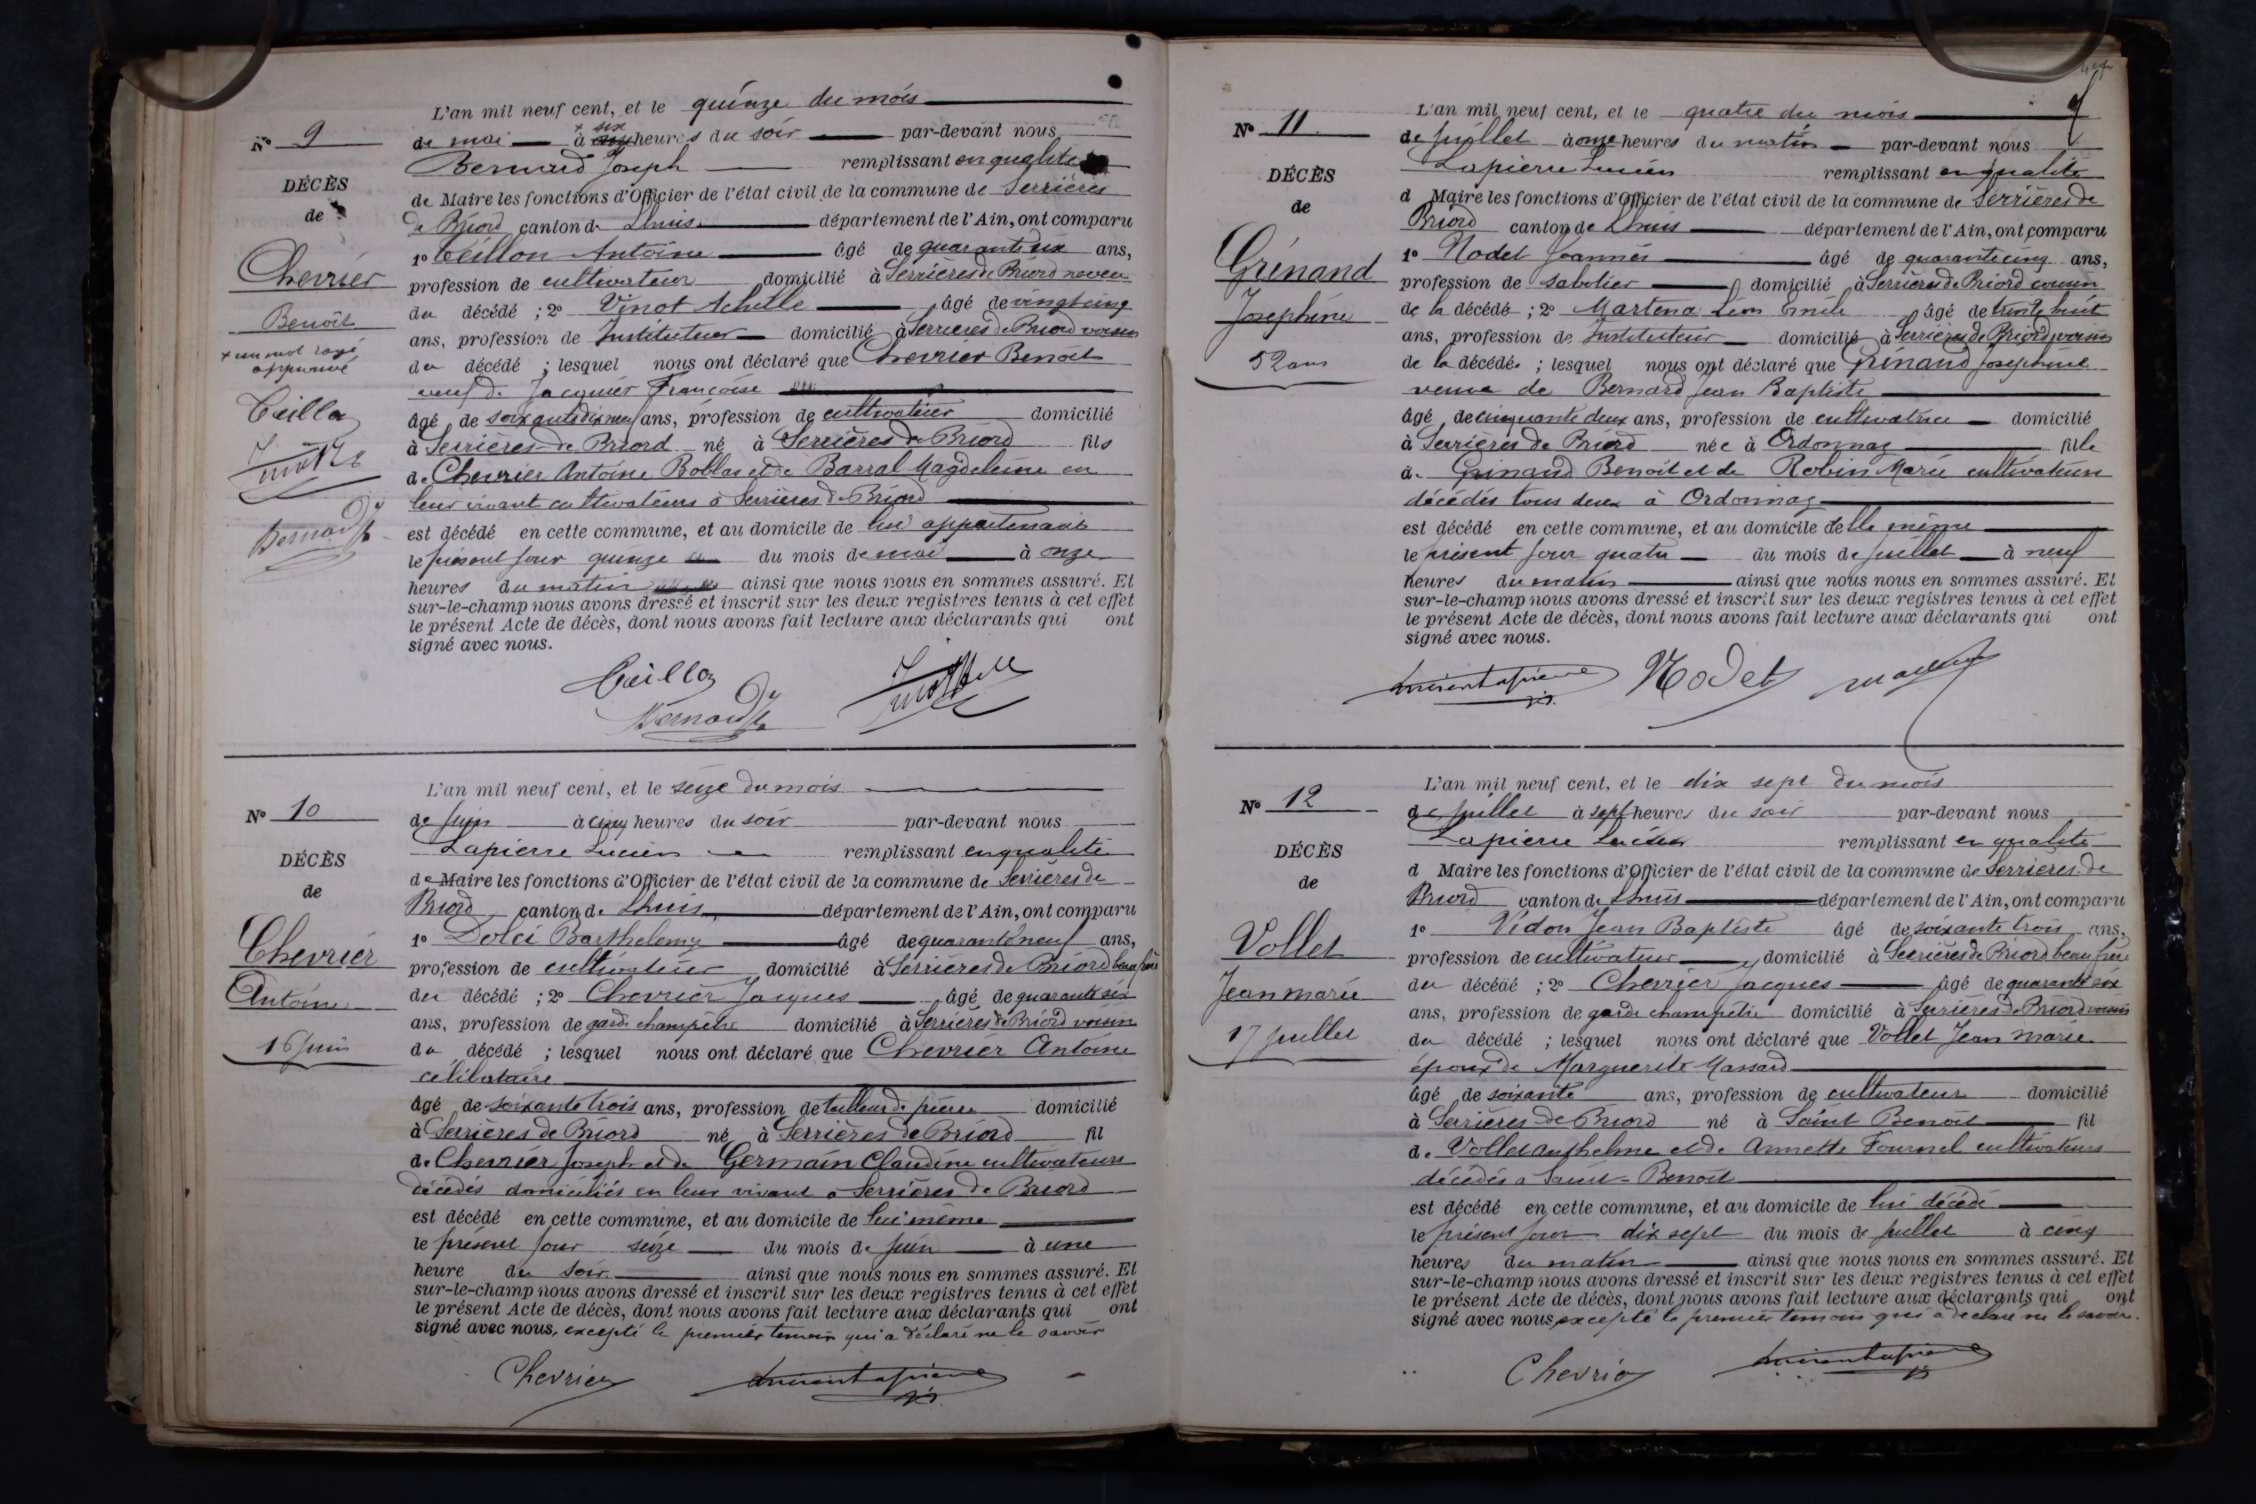 L'an mil neuf cent, et le quinze du mois
de mai à six heures du soir par-devant nous
Bernard Joseph remplissant en qualité
de Maire les fonctions d'Officier de l'état civil de la commune de Serrières
de Briord canton de Lhuis département de l'Ain, ont comparu
1º Ceillon Antoine âgé de quarante six ans,
profession de cultivateur domicilié à Serrières de Briord neveu
du décédé ; 2º Vinot Achille âgé de vingt cinq
ans, profession de Instituteur domicilié à Serrières de Briord voisin
du décédé ; lesquel nous ont déclaré que Chevrier Benoit
veuf de Jacquier Françoise
âgé de soixante dix neuf ans, profession de cultivateur domicilié
à Serrières de Briord né à Serrières de Briord fils
de Chevrier Antoine Bollas et de Barral Magdeleine en
leur vivant cultivateurs à Serrières de Briord
est décédé en cette commune, et au domicile de lui appartenant
le présent jour quinze du mois de mai à onze
heures du matin ainsi que nous nous en sommes assuré. Et
sur-le-champ nous avons dressé et inscrit sur les deux registres tenus à cet effet
le présent Acte de décès, dont nous avons fait lecture aux déclarants qui ont
signé avec nous.
Nº 9
DÉCÈS
de
Chevrier
Benoît
+ un mot rayé
approuvé
L'an mil neuf cent, et le seize du mois
de Juin à cinq heures du soir par-devant nous
Lapierre Lucien remplissant en qualité
de Maire les fonctions d'Officier de l'état civil de la commune de Serrières de
Briord canton de Lhuis département de l'Ain, ont comparu
1º Dolci Barthelemy âgé de quarante neuf ans,
profession de cultivateur domicilié à Serrières de Briord beau frère
du décédé ; 2º Chevrier Jacques âgé de quarante six
ans, profession de garde champêtre domicilié à Serrières de Briord voisin
du décédé ; lesquel nous ont déclaré que Chevrier Antoine
célibataire
âgé de soixante trois ans, profession de tailleur de pierre domicilié
à Serrières de Briord né à Serrières de Briord fil
de Chevrier Joseph et de Germain Claudine cultivateurs
décédés domiciliés en leur vivant à Serrières de Briord
est décédé en cette commune, et au domicile de lui même
le présent jour seize du mois de Juin à une
heure du soir ainsi que nous nous en sommes assuré. Et
sur-le-champ nous avons dressé et inscrit sur les deux registres tenus à cet effet
le présent Acte de décès, dont nous avons fait lecture aux déclarants qui ont
signé avec nous, excepté le premier temoin qui a déclaré ne le savoir
Chevrier
Nº 10
DÉCÈS
de
Chevrier
Antoine
16 Juin
L'an mil neuf cent, et le quatre du mois
de Juillet à onze heures du matin par-devant nous
Lapierre Lucien remplissant en qualité
d Maire les fonctions d'Officier de l'état civil de la commune de Serrières de
Briord canton de Lhuis département de l'Ain, ont comparu
1º Nodet Joannès âgé de quarante cinq ans,
profession de sabotier domicilié à Serrières de Briord cousin
de la décédé ; 2º Martena Léon Emile âgé de trente huit
ans, profession de Instituteur domicilié à Serrières de Briord voisin
de la décédée ; lesquel nous ont déclaré que Grinand Joséphine
veuve de Bernard Jean Baptiste
âgé de cinquante deux ans, profession de cultivatrice domicilié
à Serrières de Briord née à Ordonnaz fille
de Grinand Benoît et de Robin Marie cultivateurs
décédés tous deux à Ordonnaz
est décédé en cette commune, et au domicile delle même
le présent jour quatre du mois de Juillet à neuf
heures du matin ainsi que nous nous en sommes assuré. Et
sur-le-champ nous avons dressé et inscrit sur les deux registres tenus à cet effet
le présent Acte de décès, dont nous avons fait lecture aux déclarants qui ont
signé avec nous.
Nodet
Nº 11
DÉCÈS
de
Grinand
Joséphine
52 ans
L'an mil neuf cent, et le dix sept du mois
de Juillet à sept heures du soir par-devant nous
Lapierre Lucien remplissant en qualité
d Maire les fonctions d'Officier de l'état civil de la commune de Serrières de
Briord canton de Lhuis département de l'Ain, ont comparu
1º Vidon Jean Baptiste âgé de soixante trois ans,
profession de cultivateur domicilié à Serrières de Briord beau frère
du décédé ; 2º Chevrier Jacques âgé de quarante six
ans, profession de garde champêtre domicilié à Serrières de Briord voisin
du décédé ; lesquel nous ont déclaré que Vollet Jean Marie
époux de Marguerite Massard
âgé de soixante ans, profession de cultivateur domicilié
à Serrières de Briord né à Saint Benoît fil
de Vollet Anthelme et de Annette Fournel cultivateurs
décédés à Saint-Benoît
est décédé en cette commune, et au domicile de lui décédé
le présent jour dix sept du mois de Juillet à cinq
heures du matin ainsi que nous nous en sommes assuré. Et
sur-le-champ nous avons dressé et inscrit sur les deux registres tenus à cet effet
le présent Acte de décès, dont nous avons fait lecture aux déclarants qui ont
signé avec nous, excepté le premier temoin qui a déclaré ne le savoir.
Chevrier
Nº 12
DÉCÈS
de
Vollet
Jean marie
17 Juillet